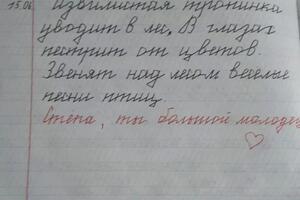 15.06
Извилистая тропинка
уводит в лес. В глазах
пестрит от цветов.
Звенят над лесом весёлые
песни птиц.
Стёпа, ты большой молодец